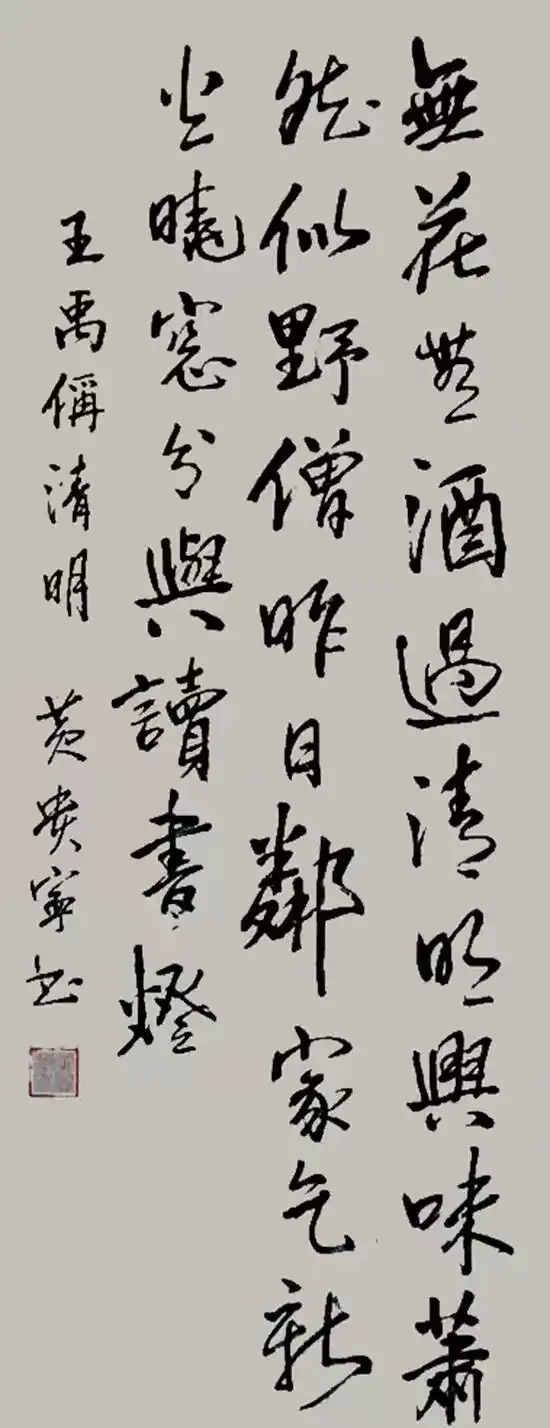 無花無酒過清明興味蕭
然似野僧昨日鄰家乞新
火曉窓分與讀書燈
王禹偁清明 黄貴寧书